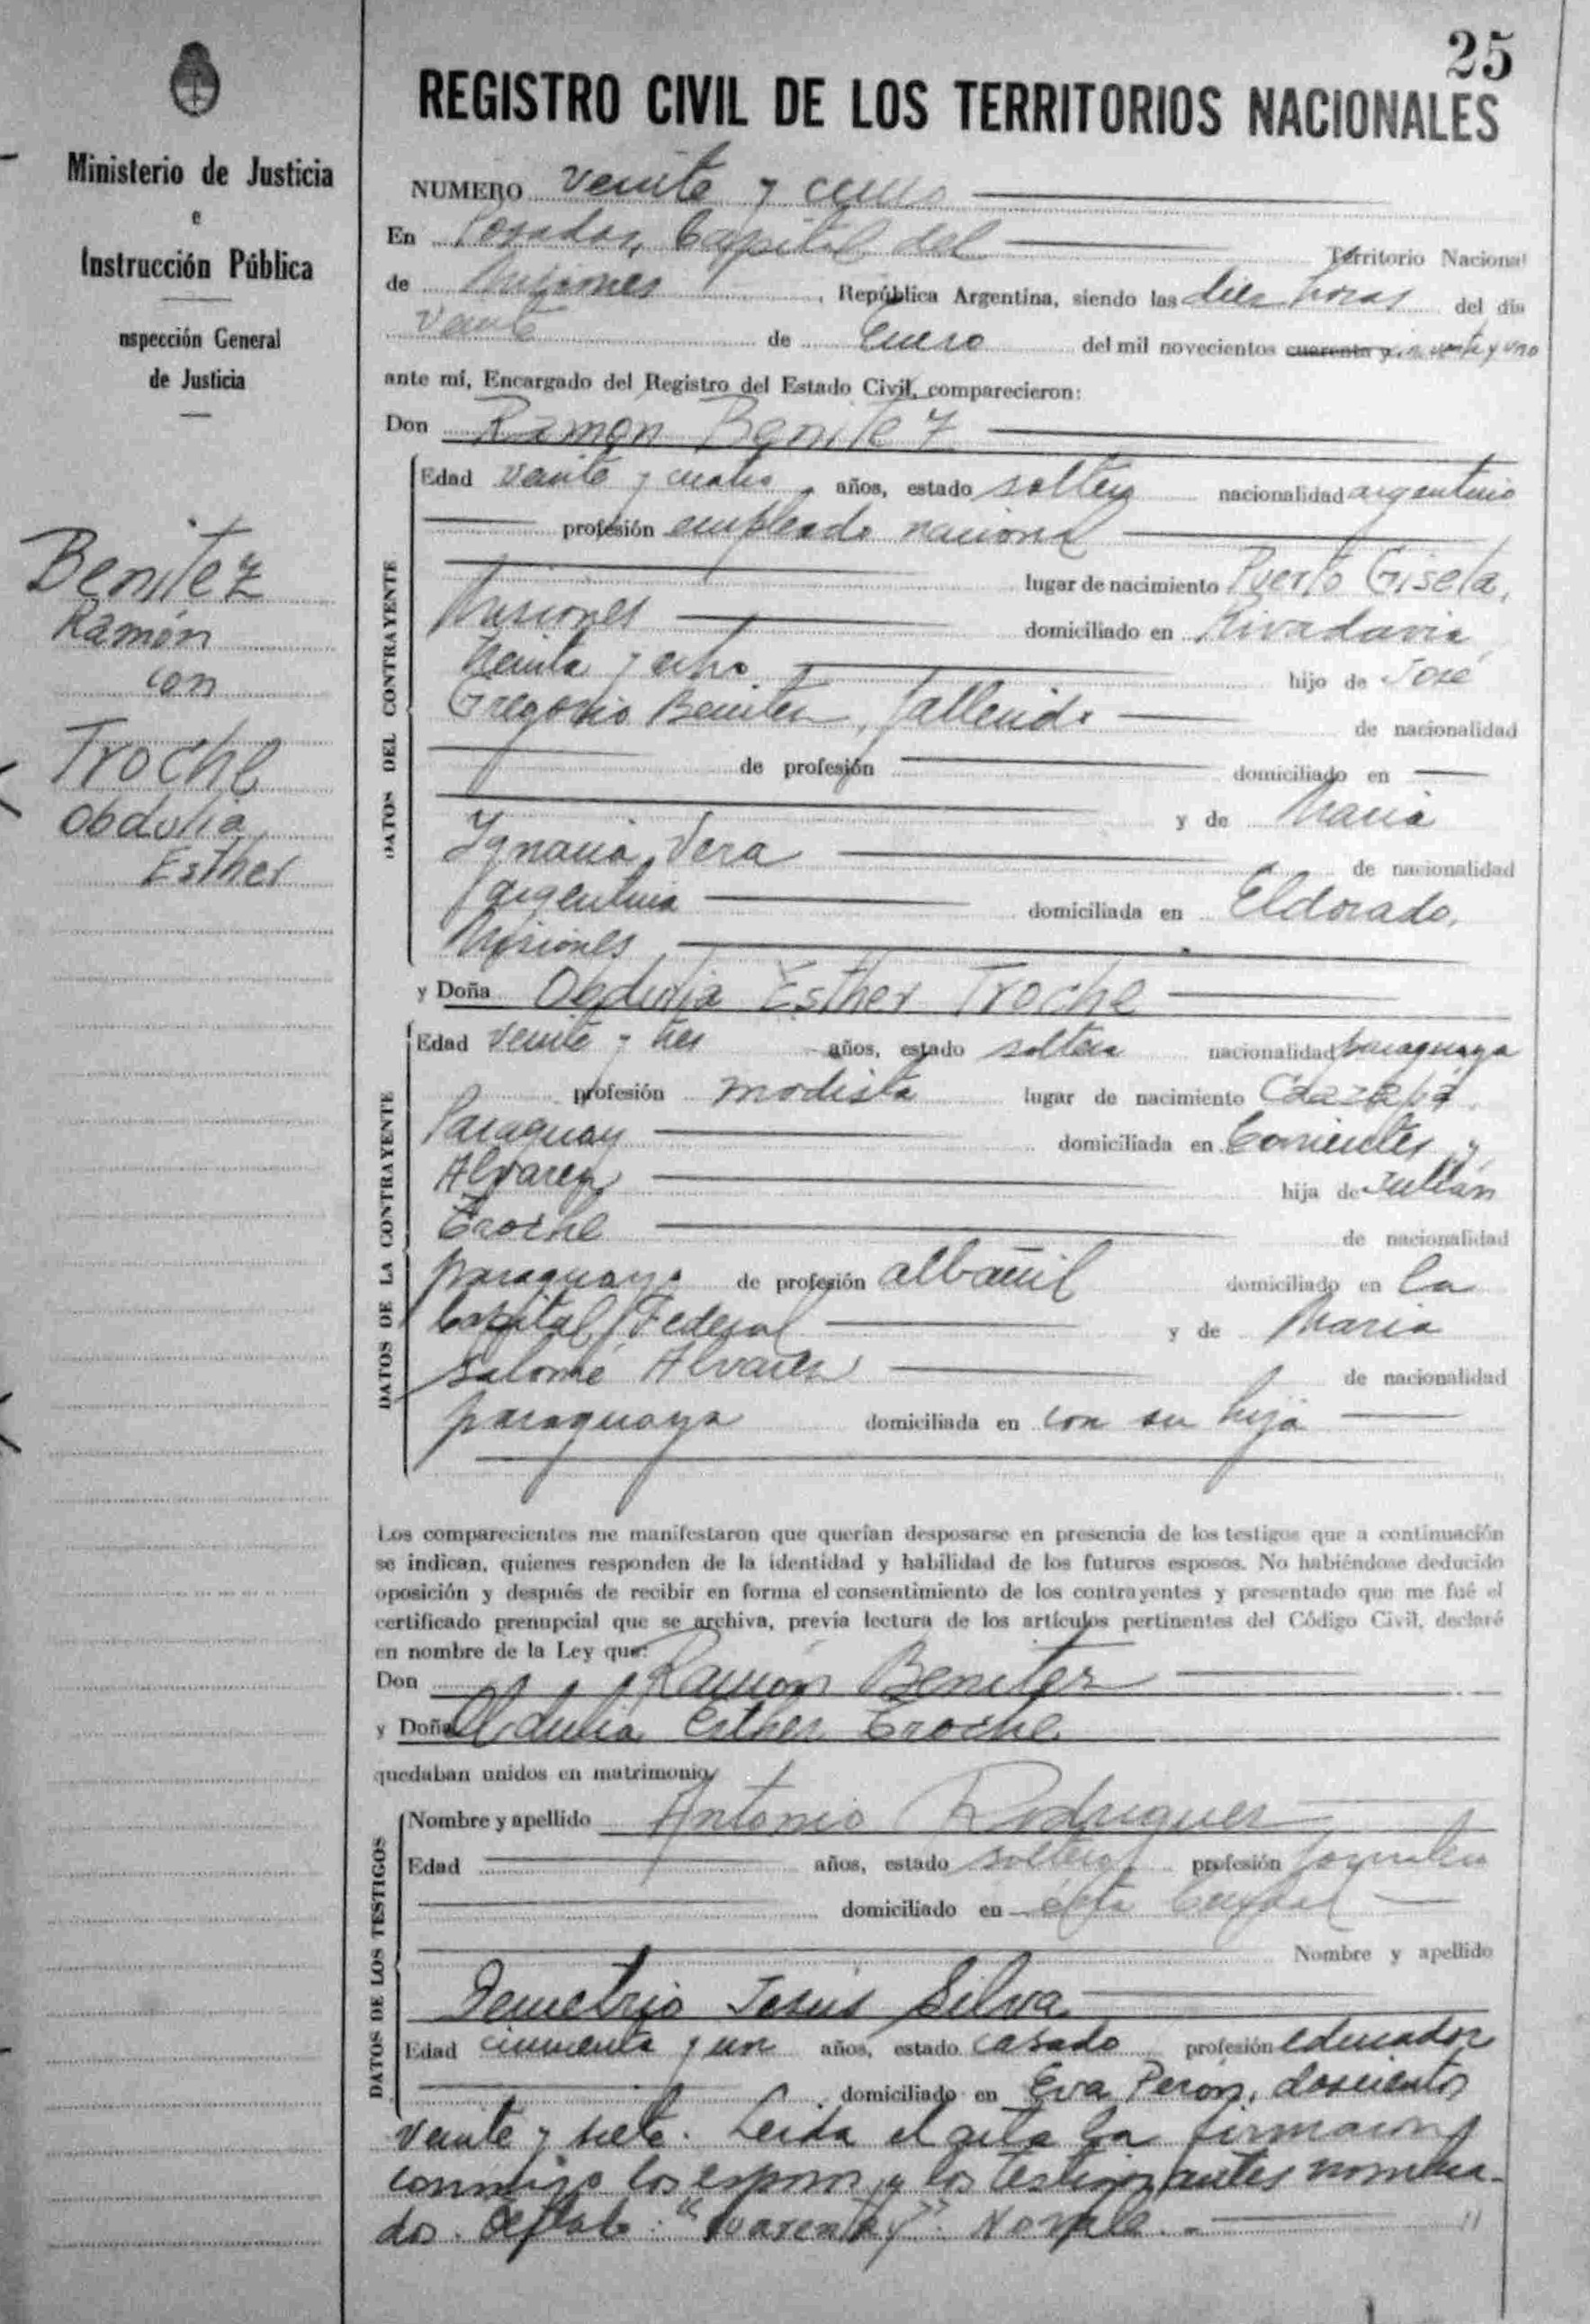 25
REGISTRO CIVIL DE LOS TERRITORIOS NACIONALES
Ministerio de Justicia
e
Instrucción Pública
nspección General
de Justicia
Benitez
Ramón
con
Troche
Obdulia
Esther
NUMERO veinte y cinco
En Posadas, Capital del Territorio Nacional
de Misiones, República Argentina, siendo las diez horas del día
veinte de Enero del mil novecientos cuarenta y cincuenta y uno
ante mí, Encargado del Registro del Estado Civil, comparecieron:
Don Ramón Benitez
DATOS DEL CONTRAYENTE
Edad veinte y cuatro años, estado soltero nacionalidad argentino
profesión empleado nacional
lugar de nacimiento Puerto Gisela,
Misiones domiciliado en Rivadavia
treinta y ocho hijo de José
Gregorio Benitez, fallecido de nacionalidad
de profesión domiciliado en
y de Maria
Ignacia Vera de nacionalidad
argentina domiciliada en Eldorado,
Misiones
y Doña Obdulia Esther Troche
DATOS DE LA CONTRAYENTE
Edad veinte y tres años, estado soltera nacionalidad paraguaya
profesión modista lugar de nacimiento Caazapá
Paraguay domiciliada en Corrientes y
Alvarez hija de Julián
Troche de nacionalidad
paraguaya de profesión albañil domiciliado en la
Capital Federal y de Maria
Salomé Alvarez de nacionalidad
paraguaya domiciliada en con su hija
Los comparecientes me manifestaron que querían desposarse en presencia de los testigos que a continuación
se indican, quienes responden de la identidad y habilidad de los futuros esposos. No habiéndose deducido
oposición y después de recibir en forma el consentimiento de los contrayentes y presentado que me fué el
certificado prenupcial que se archiva, previa lectura de los artículos pertinentes del Código Civil, declaré
en nombre de la Ley que:
Don Ramón Benitez
y Doña Obdulia Esther Troche
quedaban unidos en matrimonio
DATOS DE LOS TESTIGOS
Nombre y apellido Antonio Rodriguez
Edad años, estado soltero, profesión jornalero
domiciliado en ésta Capital
Nombre y apellido
Demetrio Jesús Silva
Edad cincuenta y un años, estado casado profesión educador
domiciliado en Eva Perón, doscientos
veinte y siete. Leida el acta la firmaron
conmigo los esposos y los testigos antes nombra-
dos. Testado: "cuarenta y": No vale.-